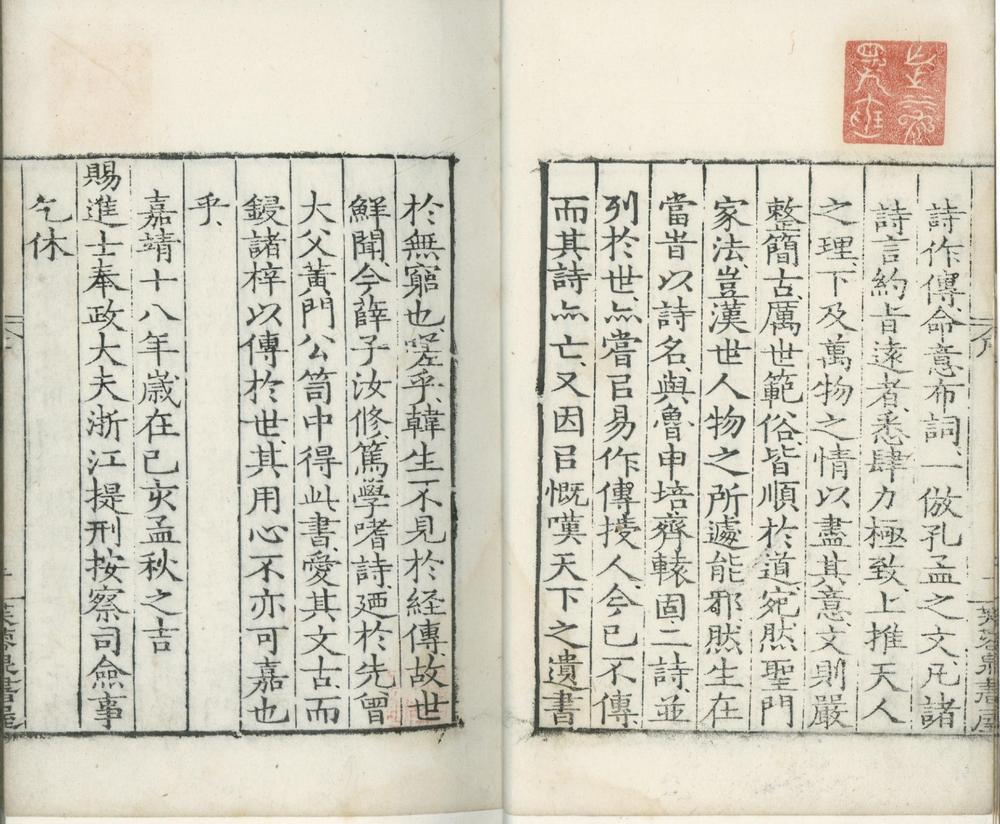 詩作傳、命意布詞、一倣孔孟之文、凡諸
詩言約旨遠者、悉肆力極致、上推天人
之理、下及萬物之情、以盡其意、文則嚴
整簡古、厲世範俗、皆順於道、宛然聖門
家法、豈漢世人物之所遽能鄀然、生在
當旹以詩名、與魯申培齊轅固二詩、並
列於世、亦嘗㠯易作傳授人、今已不傳、
而其詩亦亡、又因㠯慨嘆天下之遺書
於無窮也、嗟乎、韓生不見於経傳、故世
鮮聞、今薛子汝修篤學嗜詩、廼於先曾
大父黄門公笥中得此書、愛其文古、而
鋟諸梓以傳於世、其用心不亦可嘉也
乎、
嘉靖十八年歳在己亥孟秋之吉
賜進士奉政大夫浙江提刑按察司僉事
乞休